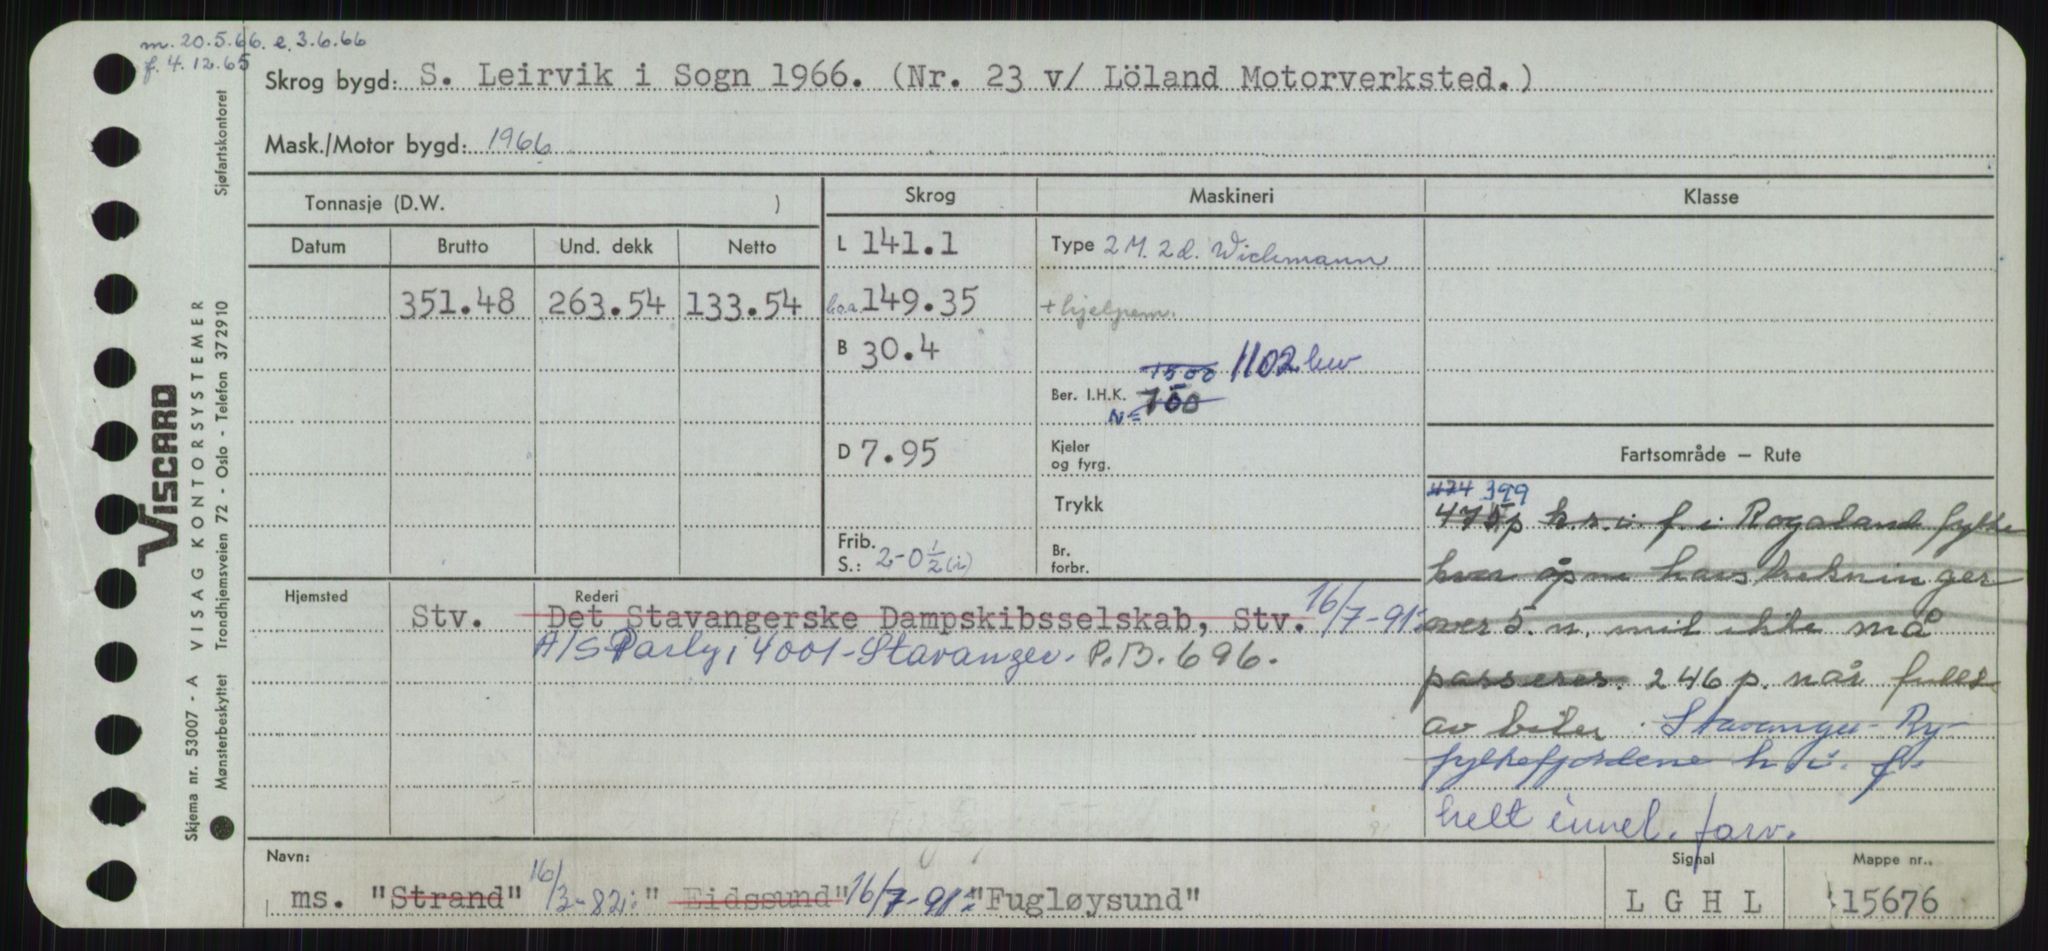 m. 20.5.66. e. 3.6.66
f. 4.12.65
Skrog bygd: S. Leirvik i Sogn 1966. (Nr. 23 v/ Löland Motorverksted.)
Mask./Motor bygd: 1966
Tonnasje (D.W. )
Skrog Maskineri Klasse
Datum Brutto Und. dekk Netto
L 141.1 Type 2 M. 2d. Wichmann
351.48 263.54 133.54 l.o.a. 149.35 + hjelpem.
B 30.4
1500 1102 hw
Ber. I.H.K. 700
N=
D 7.95 Kjeler og fyrg.
Fartsområde — Rute
Trykk
Frib. S.: 2-0 ½ (i)
Br. forbr.
474 399
475 p h.s.i. f. i Rogaland fylke
hvor åpne havstrekninger
over 5 n. mil ikke må
passeres. 246 p. når fullt
av biler. Stavanger-Ry-
fylkefjordene h. i. f.
helt innel. farv.
Hjemsted Rederi
Stv. Det Stavangerske Dampskibsselskab, Stv. 16/7-91:
A/S Parly, 4001-Stavanger. P.B. 696.
Navn: Signal Mappe nr.
ms. "Strand" 16/3-82: "Eidssund" 16/7-91: "Fugløysund" LGHL 15676
Skjema nr. 53007 - A VISAG KONTORSYSTEMER
Mønsterbeskyttet Trondhjemsveien 72 - Oslo - Telefon 372910
Sjøfartskontoret
VISCARD